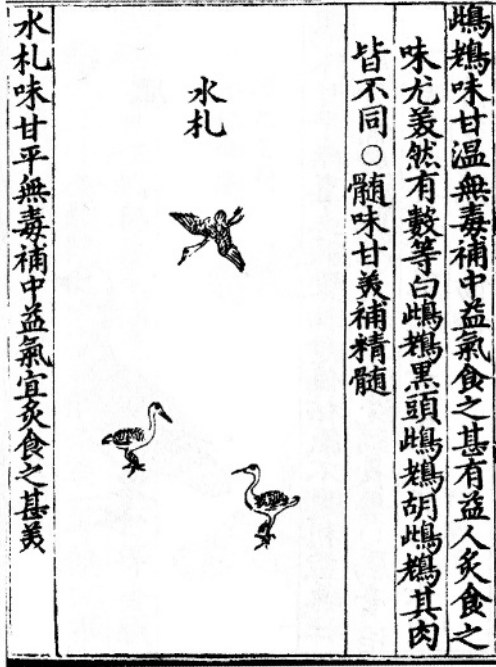 鴜䳓味甘温無毒補中益氣食之甚有益人炙食之
味尤美然有數等白鴜䳓黑頭鴜䳓胡鴜䳓其肉
皆不同○髓味甘美補精髓
水札
水札味甘平無毒補中益氣宜炙食之甚美